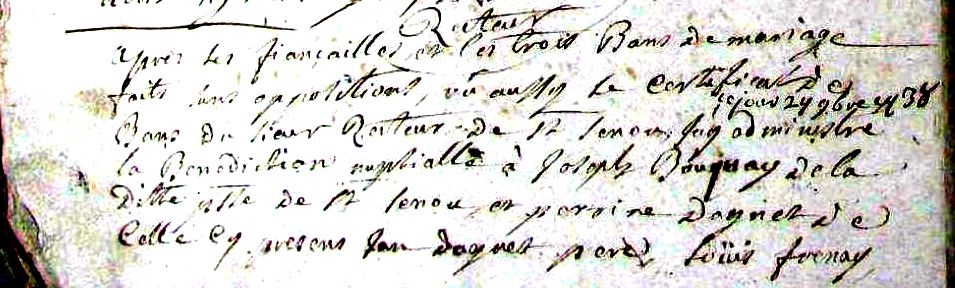 Recteur
après les fiançailles et les trois Bans de mariage
faits sans oppositions, vû aussy le certificat de
ce jour 24 9bre 1738
Bans du sieur Recteur de St Senou, jay administré
la Benediction nuptialle à Joseph Bouquay de la
ditte psse de St Senou, et perrine dagnet de
Celle Cy presens Jan dagnet pere, Loüis frenay